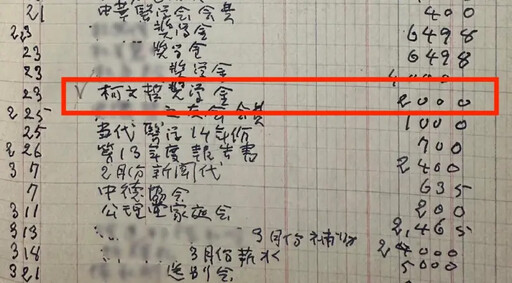 21 中華醫学会会費 400
23 奬学金 6498
23 奬学金 6498
23 奬学金
✓ 23 柯文哲奬学金 2000
225 会費 1000
25 当代醫学14年份 700
226 第13年度報告書 2400
37 2月份新聞代 635
7 中德協会 200
311
313 3月份 2,465
318 3月份薪水 24000
321 送別会 5000